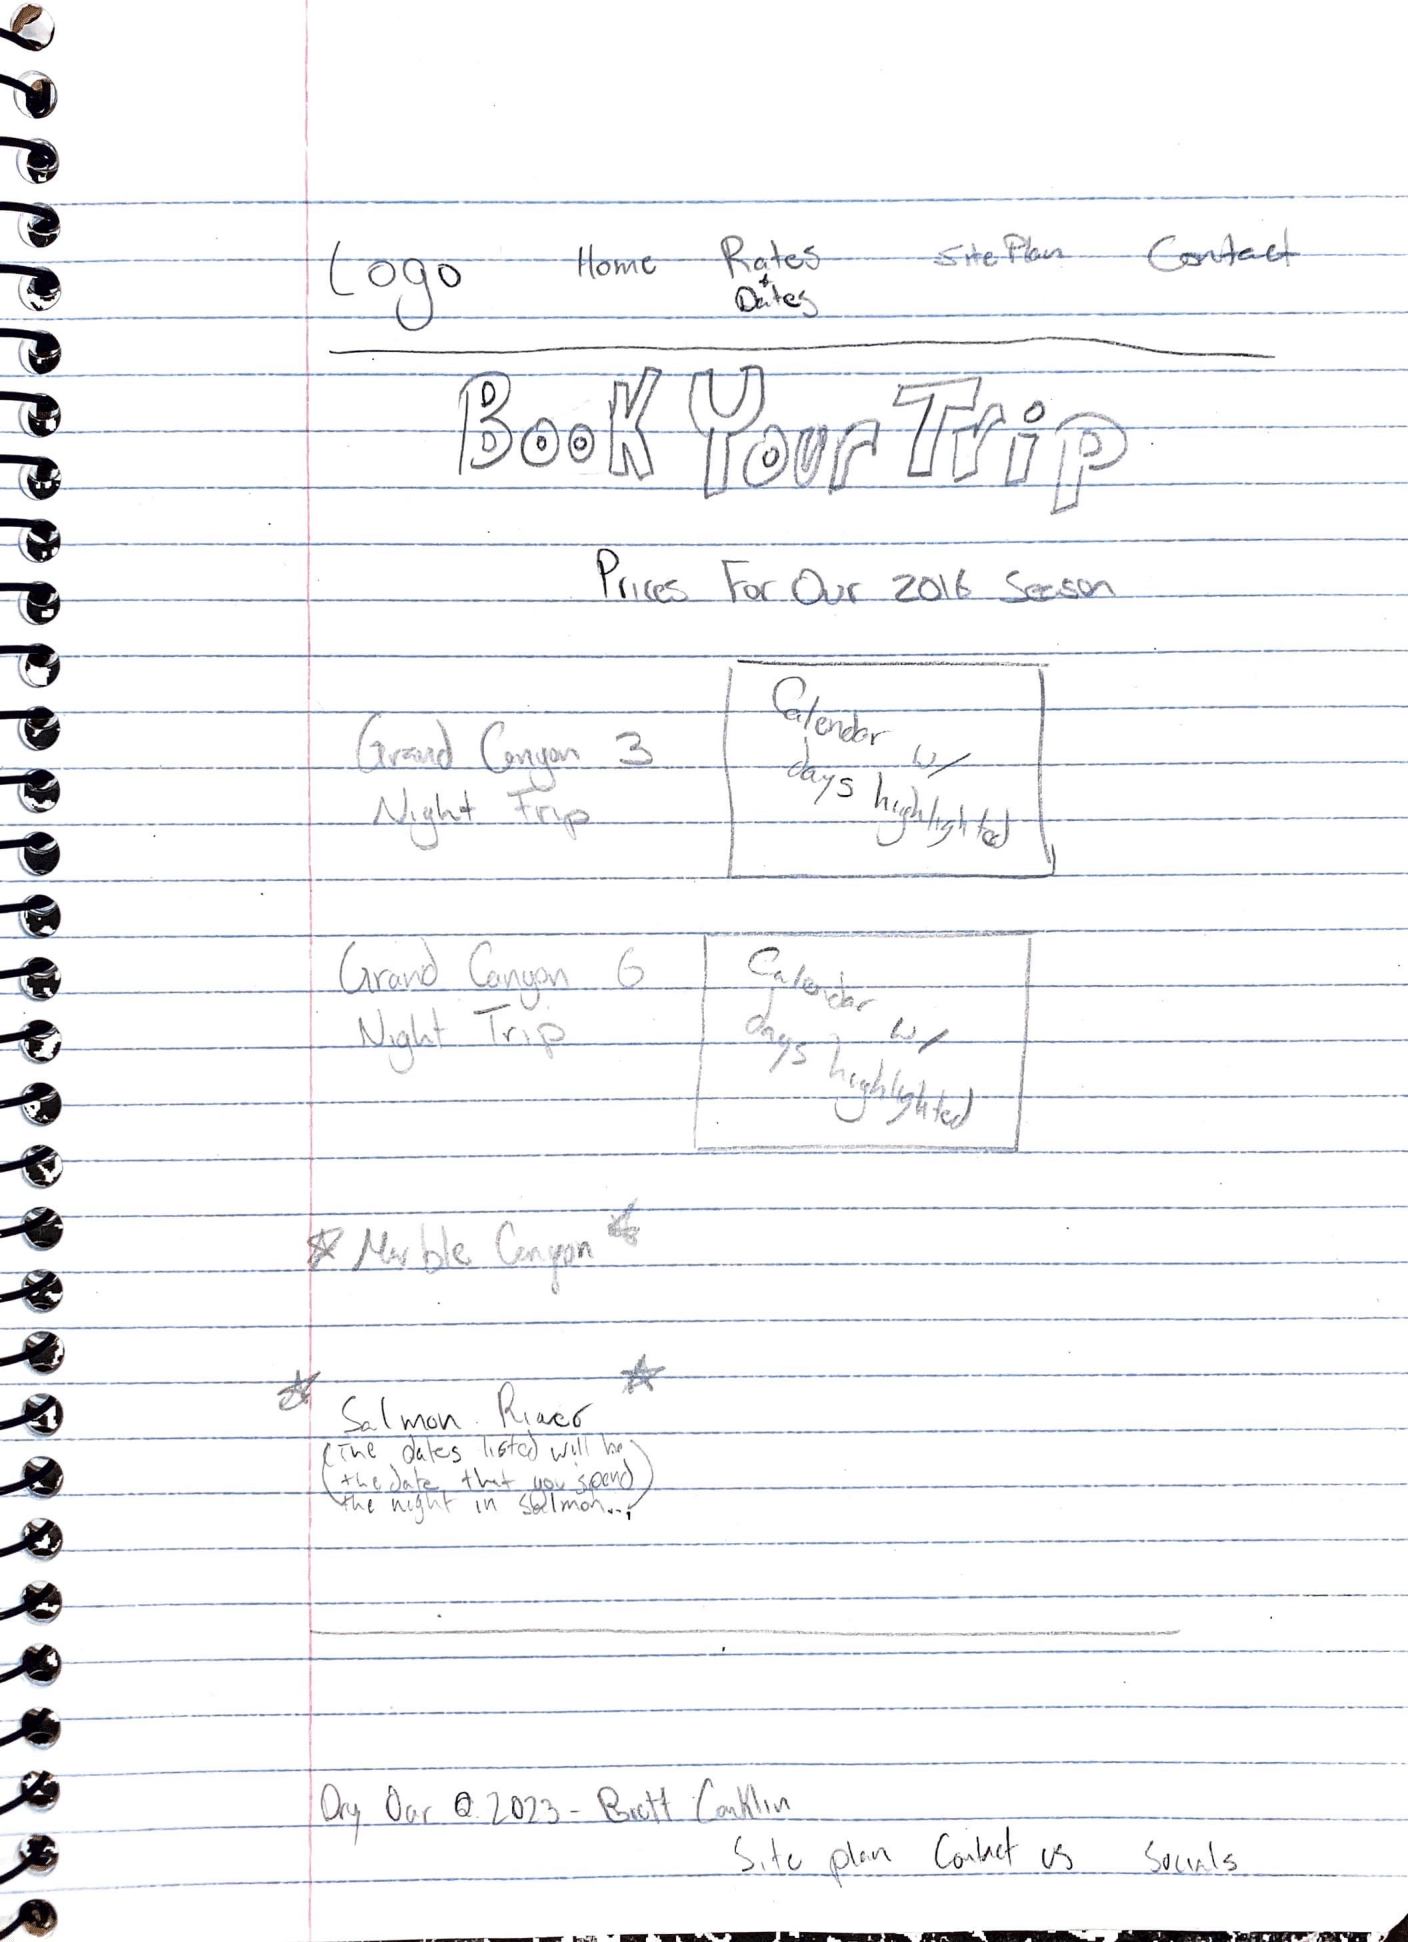 Logo Home Rates Site Plan Contact
+
Dates
Book Your Trip
Prices For Our 2016 Season
Grand Canyon 3
Night Trip
Calendar w/
days highlighted
Grand Canyon 6
Night Trip
Calendar w/
days highlighted
Marble Canyon
Salmon River
(The dates listed will be
the date that you spend
the night in Salmon...)
Dry Oar © 2023 - Brett Conklin
Site plan Contact us Socials